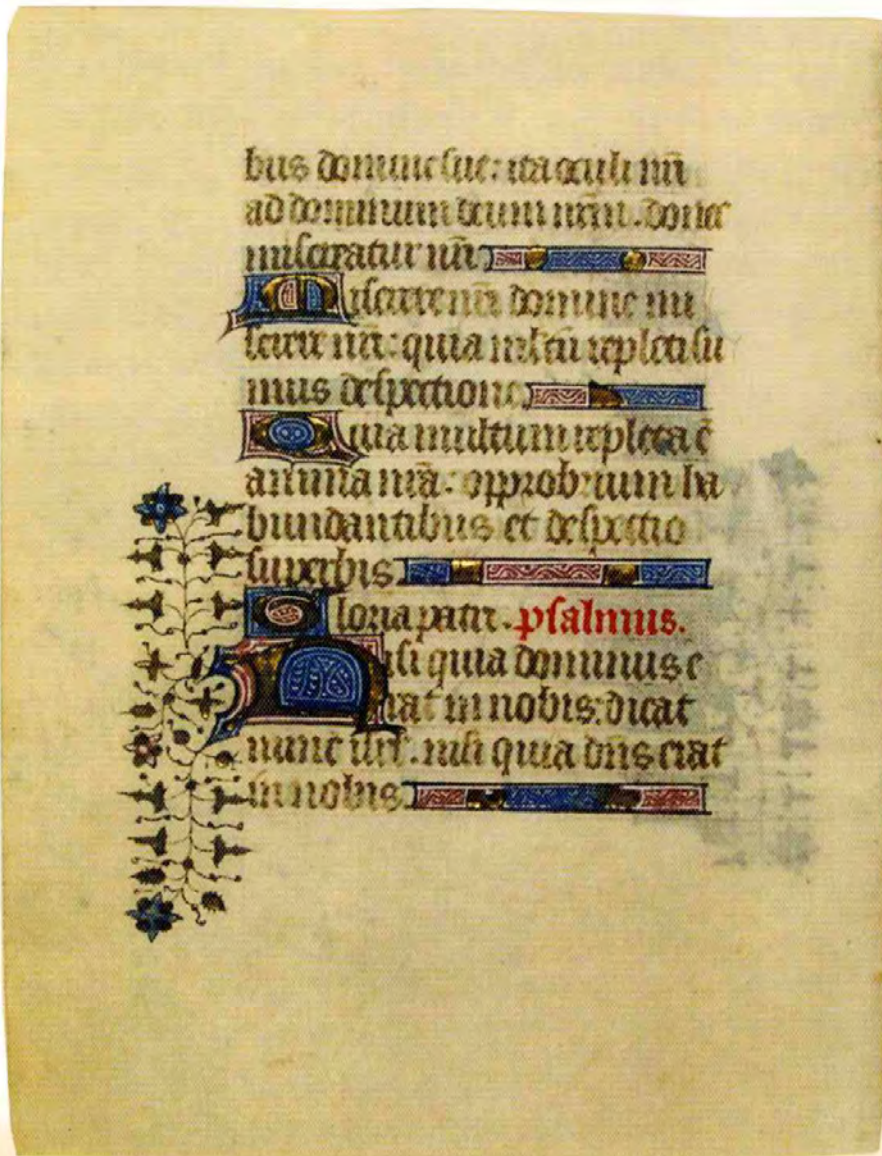 bus domine sue: ita oculi nr̄i
ad dominum deum nrm̄. donec
misereatur nr̄i
Miserere nr̄i domine mi
serere nr̄i: quia multū repleti su
mus despectione
Quia multum repleta ē
anima nr̄a: opprobrium ha
bundantibus et despectio
superbis.
Gloria patri. psalmus.
Nisi quia dominus e
rat in nobis: dicat
nunc isrl̄. nisi quia dn̄s erat
in nobis.